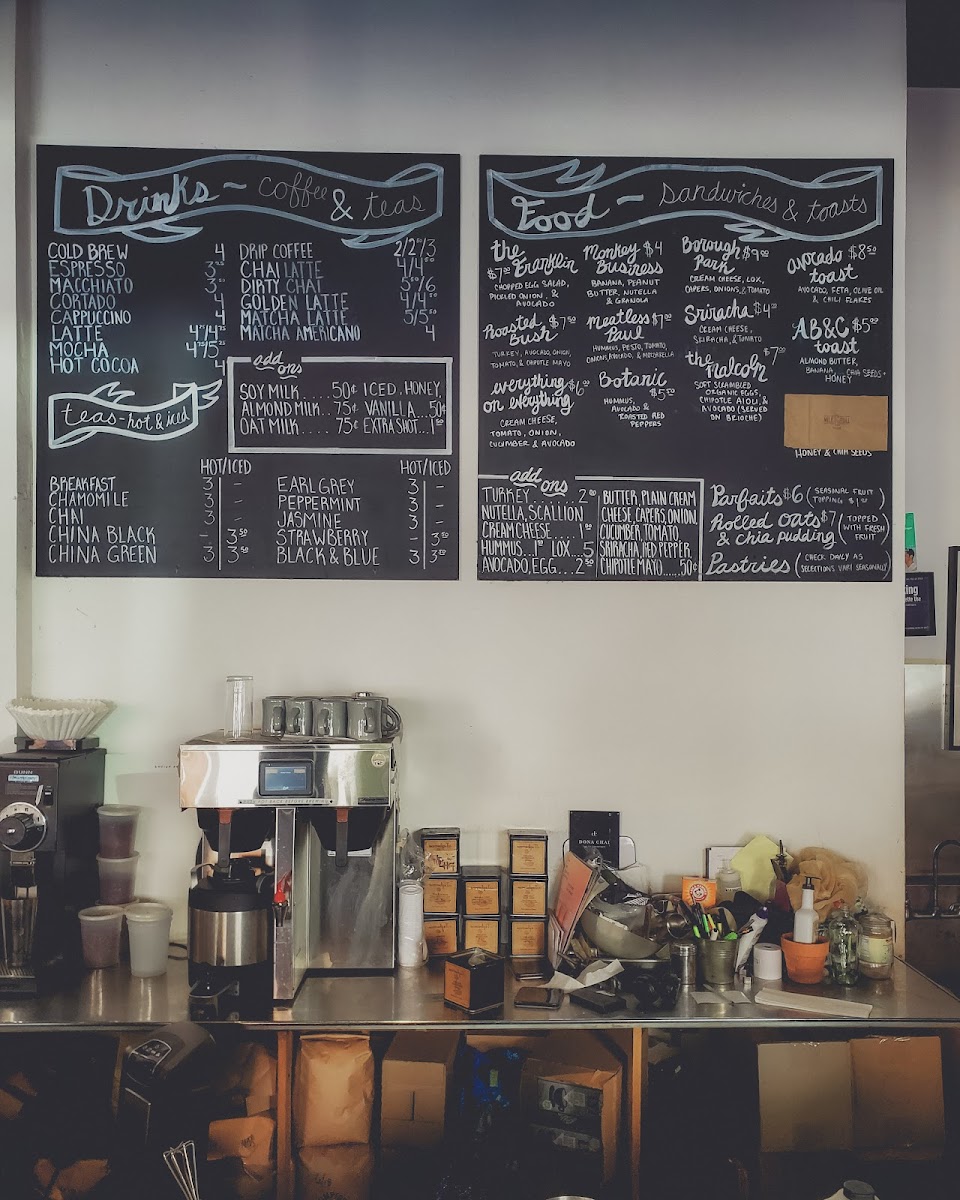 Drinks ~ coffee & teas
COLD BREW 4
ESPRESSO
MACCHIATO
CORTADO 4
CAPPUCCINO 4
LATTE
MOCHA
HOT COCOA 4
DRIP COFFEE
CHAI LATTE
DIRTY CHAI
GOLDEN LATTE
MATCHA LATTE
MATCHA AMERICANO 4
add ons
SOY MILK.....50¢
ALMOND MILK..75¢
OAT MILK.....75¢
ICED, HONEY,
VANILLA...50¢
EXTRA SHOT...1⁵⁰
teas-hot & iced
HOT/ICED
BREAKFAST 3 -
CHAMOMILE 3 -
CHAI 3 -
CHINA BLACK - 3⁵⁰
CHINA GREEN 3 3⁵⁰
HOT/ICED
EARL GREY 3 -
PEPPERMINT 3 -
JASMINE 3 -
STRAWBERRY -
BLACK & BLUE 3
Food ~ sandwiches & toasts
the
Franklin
CHOPPED EGG SALAD,
PICKLED ONION, &
AVOCADO
Roasted
Bush
TURKEY, AVOCADO, ONION,
TOMATO, & CHIPOTLE MAYO
everything
on everything
CREAM CHEESE,
TOMATO, ONION,
CUCUMBER & AVOCADO
Monkey $4
Business
BANANA, PEANUT
BUTTER, NUTELLA
& GRANOLA
Meatless
Paul
HUMMUS, PESTO, TOMATO,
ONIONS, AVOCADO, & MOZZARELLA
Botanic
HUMMUS,
AVOCADO &
ROASTED RED
PEPPERS
Borough
Park
CREAM CHEESE, LOX,
CAPERS, ONIONS, & TOMATO
Sriracha
CREAM CHEESE,
SRIRACHA, & TOMATO
the
Malcolm
SOFT SCRAMBLED
ORGANIC EGGS,
CHIPOTLE AIOLI, &
AVOCADO (SERVED
ON BRIOCHE)
avocado $8⁵⁰
toast
AVOCADO, FETA, OLIVE OIL
& CHILI FLAKES
AB&C
toast
ALMOND BUTTER,
BANANA, CHIA SEEDS +
HONEY
HONEY & CHIA SEEDS
add ons
TURKEY.......2⁰⁰
NUTELLA, SCALLION
CREAM CHEESE....1⁵⁰
HUMMUS...1⁵⁰ LOX....5
AVOCADO, EGG...2⁵⁰
BUTTER, PLAIN CREAM
CHEESE, CAPERS, ONION,
CUCUMBER, TOMATO
SRIRACHA, RED PEPPER,
CHIPOTLE MAYO......50¢
Parfaits $6 (SEASONAL FRUIT
TOPPING $1⁵⁰)
Rolled oats $7
& chia pudding (TOPPED
WITH FRESH
FRUIT)
Pastries (CHECK DAILY AS
SELECTIONS VARY SEASONALLY)
BUNN
DONA CHAI